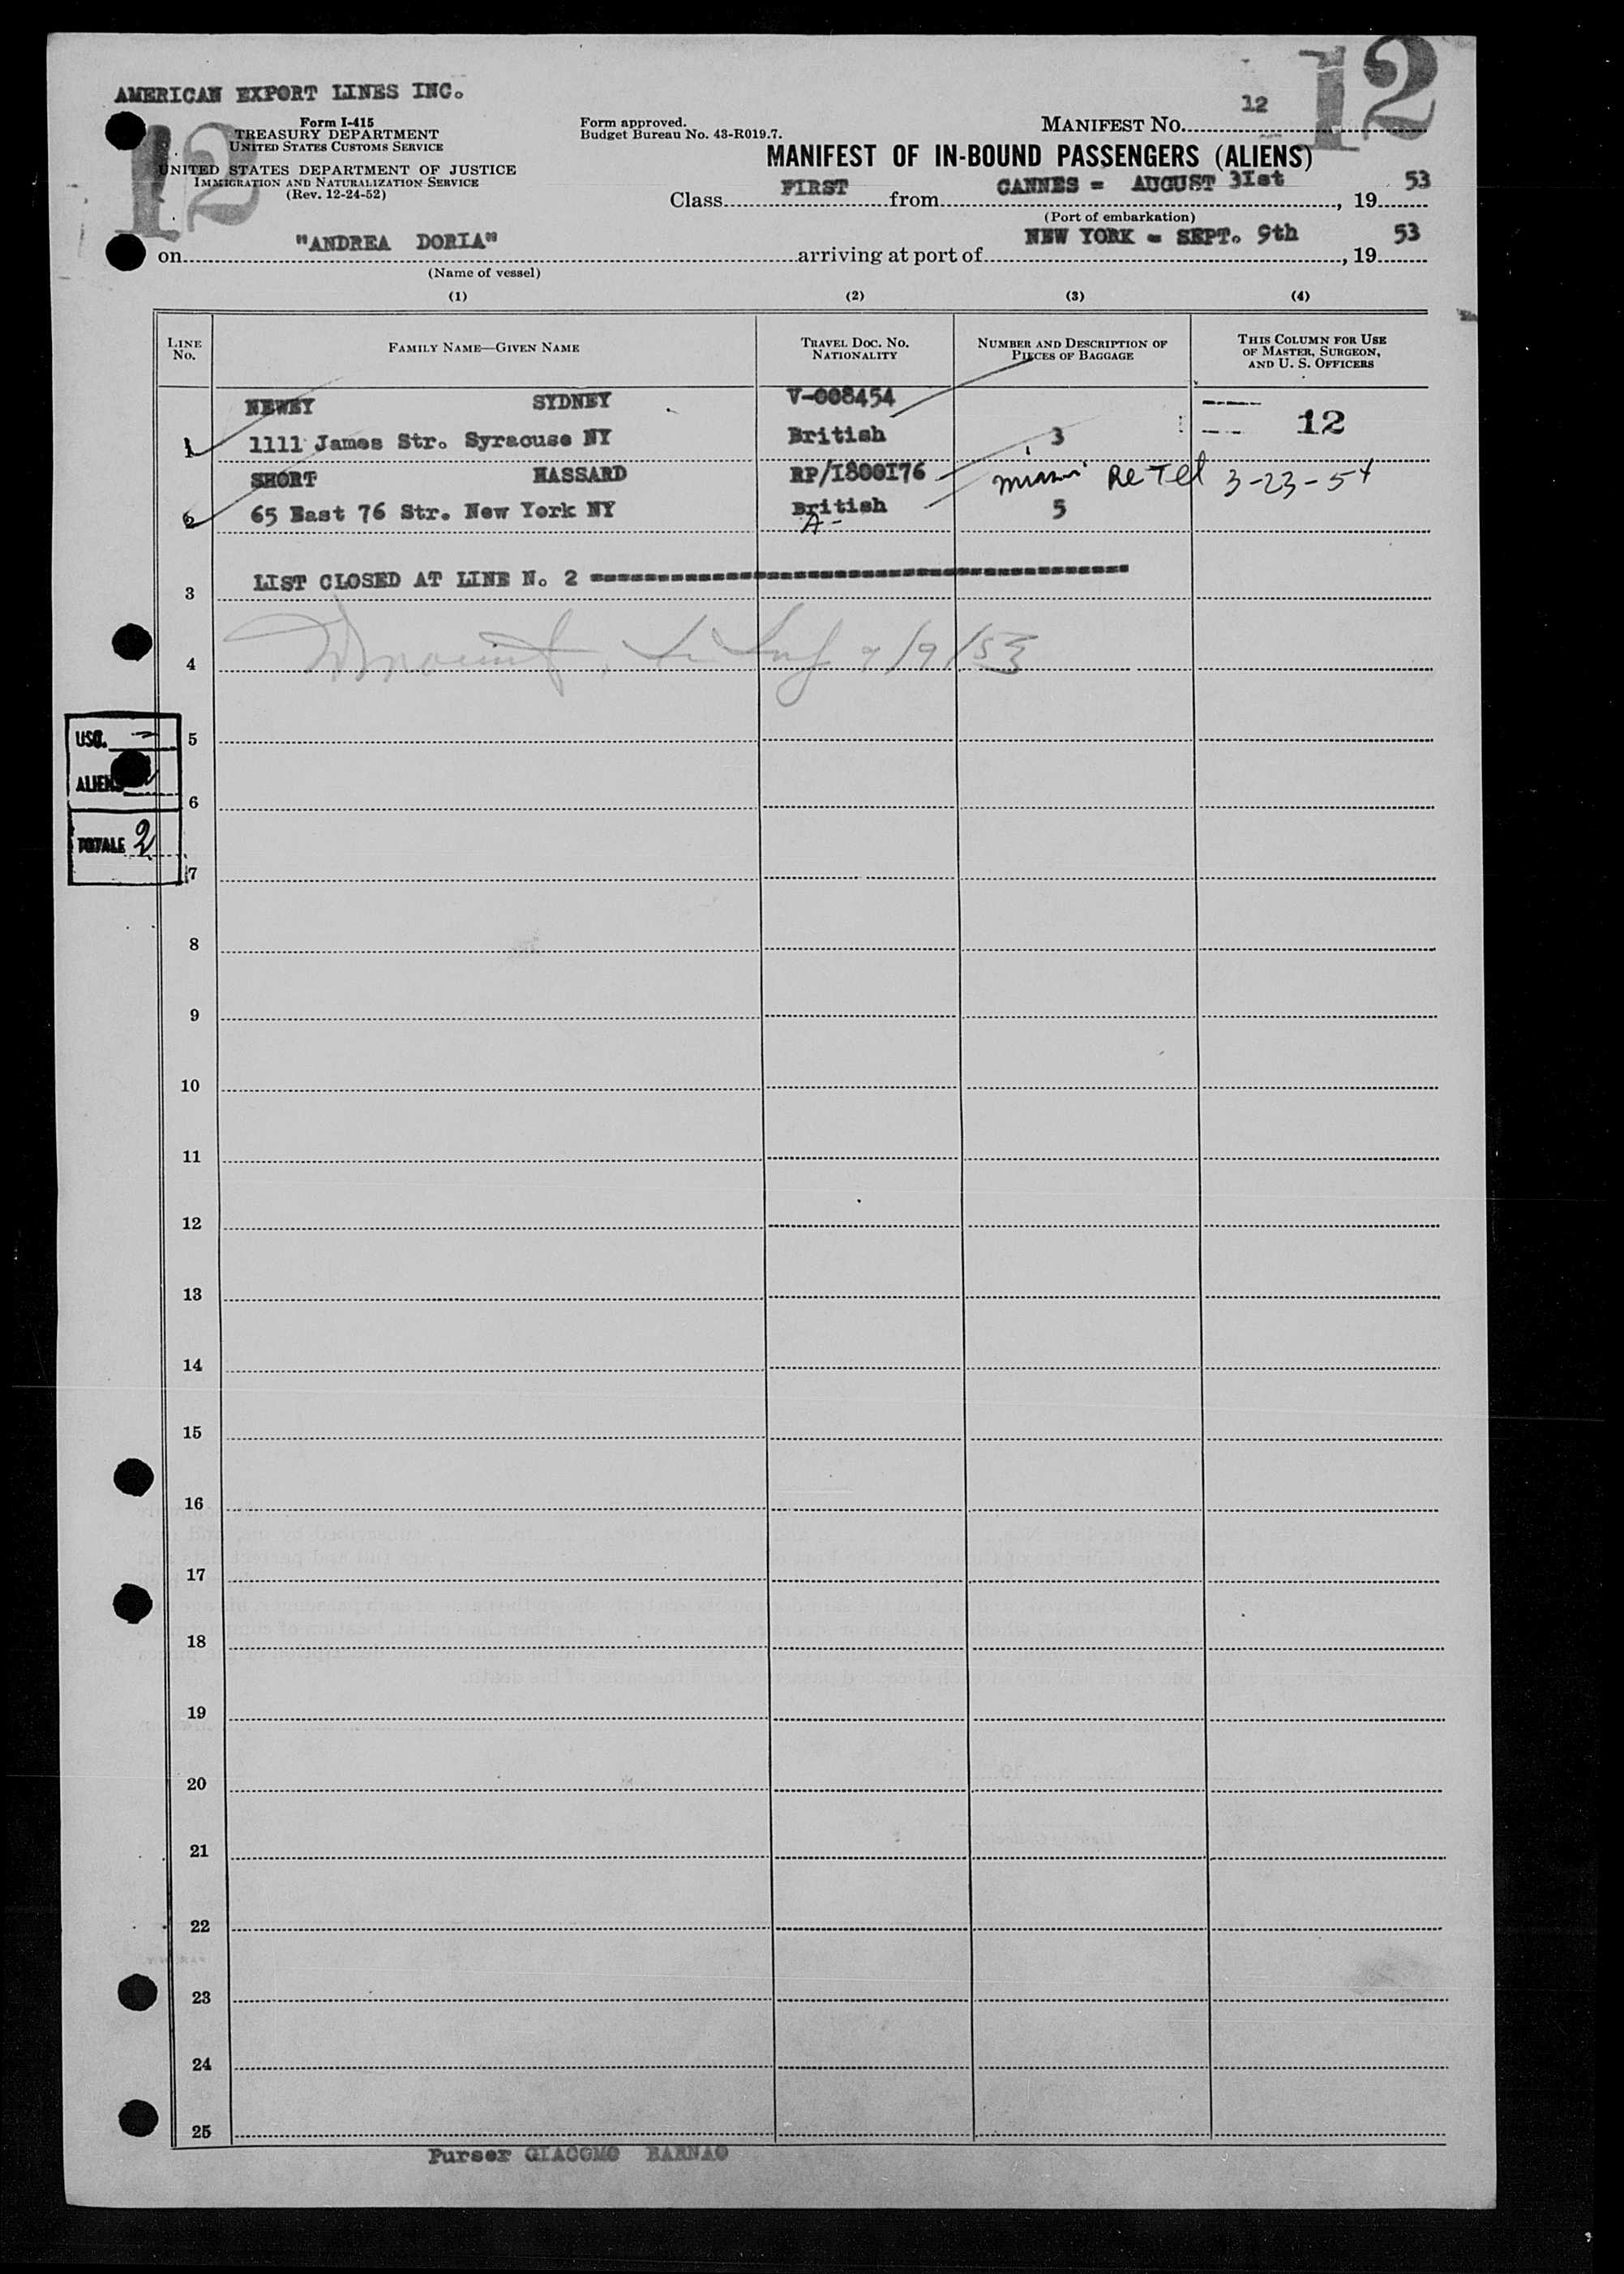 AMERICAN EXPORT LINES INC.
12
12
Form I-415
TREASURY DEPARTMENT
UNITED STATES CUSTOMS SERVICE
UNITED STATES DEPARTMENT OF JUSTICE
IMMIGRATION AND NATURALIZATION SERVICE
(Rev. 12-24-52)
Form approved.
Budget Bureau No. 43-R019.7.
MANIFEST No. 12
MANIFEST OF IN-BOUND PASSENGERS (ALIENS)
Class FIRST from CANNES = AUGUST 3Ist, 19 53
(Port of embarkation)
on "ANDREA DORIA" arriving at port of NEW YORK = SEPT. 9th, 19 53
(Name of vessel)
(1) (2) (3) (4)
LINE No. FAMILY NAME—GIVEN NAME TRAVEL DOC. NO. NATIONALITY NUMBER AND DESCRIPTION OF PIECES OF BAGGAGE THIS COLUMN FOR USE OF MASTER, SURGEON, AND U. S. OFFICERS
NEWEY SYDNEY V-008454
1 1111 James Str. Syracuse NY British 3 12
SHORT HASSARD RP/I800I76 Miami Re Tel 3-23-54
2 65 East 76 Str. New York NY British 5
A-
3 LIST CLOSED AT LINE N. 2
4 9/9/53
USC. —
ALIENS
TOTALE 2
5
6
7
8
9
10
11
12
13
14
15
16
17
18
19
20
21
22
23
24
25
Purser GIACOMO BARNAO